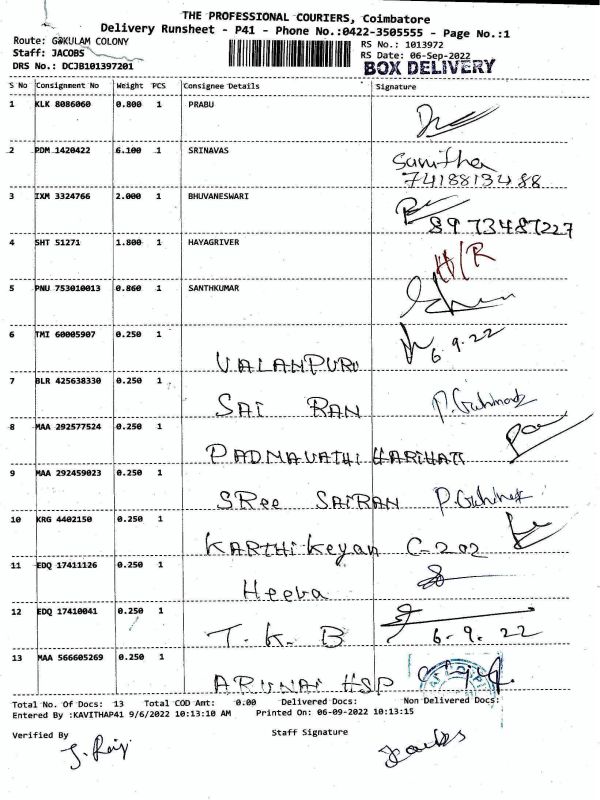 THE PROFESSIONAL COURIERS, Coimbatore
Delivery Runsheet - P41 - Phone No.:0422-3505555 - Page No.:1
Route: GOKULAM COLONY
RS No.: 1013972
Staff: JACOBS
RS Date: 06-Sep-2022
DRS No.: DCJB101397201
BOX DELIVERY
S No Consignment No Weight PCS Consignee Details Signature
1 KLK 8086060 0.800 1 PRABU
2 PDM 1420422 6.100 1 SRINAVAS Sunitha
7418813488
3 IXM 3324766 2.000 1 BHUVANESWARI
8973487227
4 SHT 51271 1.800 1 HAYAGRIVER H/R
5 PNU 753010013 0.860 1 SANTHKUMAR
6 TMI 60005907 0.250 1 VALANPURI 6.9.22
7 BLR 425638330 0.250 1 SAI RAN
8 MAA 292577524 0.250 1 PADMAVATHI
9 MAA 292459023 0.250 1 SRee SAIRAN
10 KRG 4402150 0.250 1 KARTHIKeyan C-202
11 EDQ 17411126 0.250 1 Heeba
12 EDQ 17410041 0.250 1 T. K. B 6.9.22
13 MAA 566605269 0.250 1 ARUNAI HSP
Total No. Of Docs: 13 Total COD Amt: 0.00 Delivered Docs: Non Delivered Docs:
Entered By :KAVITHAP41 9/6/2022 10:13:10 AM Printed On: 06-09-2022 10:13:15
Verified By Staff Signature